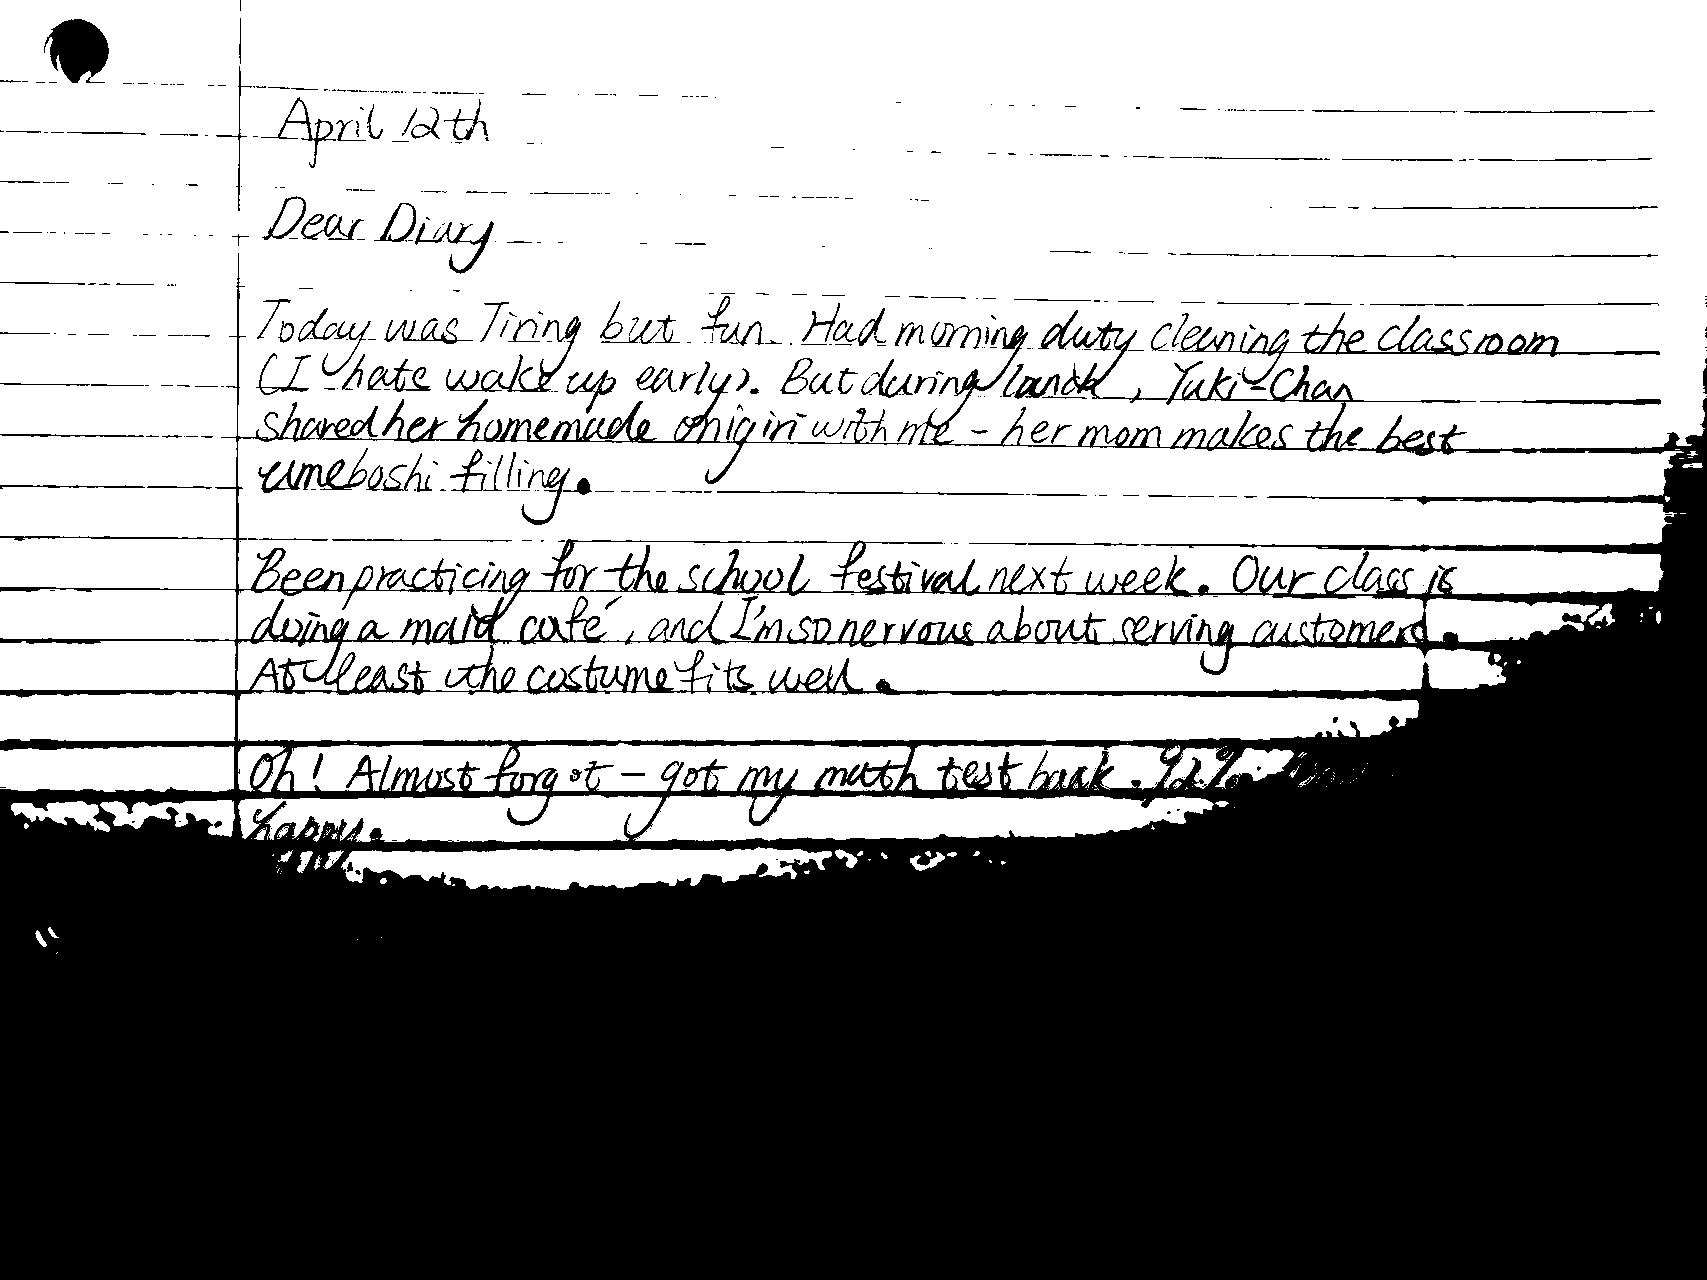 April 12th
Dear Diary
Today was Tiring but fun. Had morning duty cleaning the classroom
(I hate wake up early). But during lunch, Yuki-Chan
shared her homemade onigiri with me - her mom makes the best
umeboshi filling.
Been practicing for the school festival next week. Our class is
doing a maid café, and I'm so nervous about serving customers.
At least the costume fits well.
Oh! Almost forgot - got my math test back. 92%.
happy.